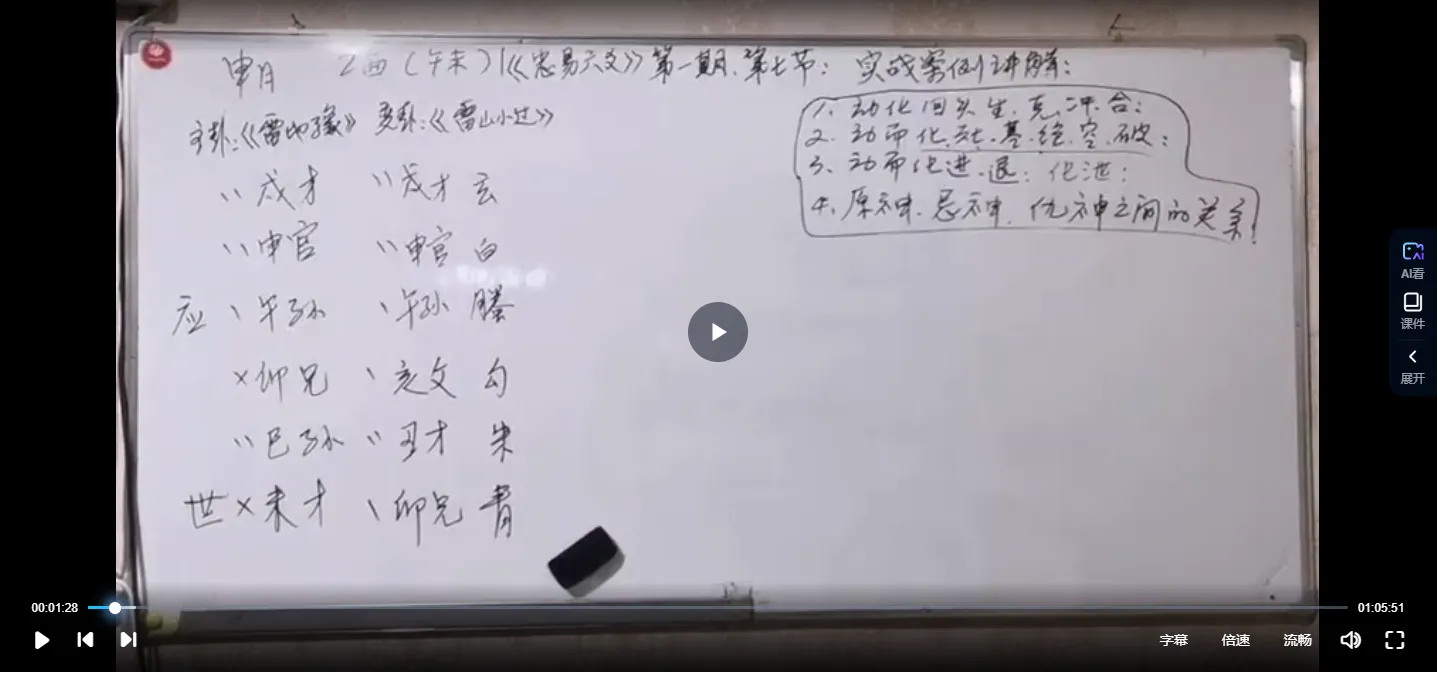 申月 乙酉(午未)《忠易六爻》第一期、第七节: 实战案例讲解:
主卦:《雷地豫》 变卦:《雷山小过》
1、动化回头生、克、冲、合;
2、动而化死、墓、绝、空、破;
3、动而化进、退; 化泄;
4、原神、忌神、仇神之间的关系!
〃戌才 〃戌才 玄
〃申官 〃申官 白
应 、午孙 、午孙 螣
×卯兄 、亥父 勾
〃巳孙 〃丑才 朱
世×未才 、卯兄 青
AI看
课件
展开
00:01:28
01:05:51
字幕 倍速 流畅